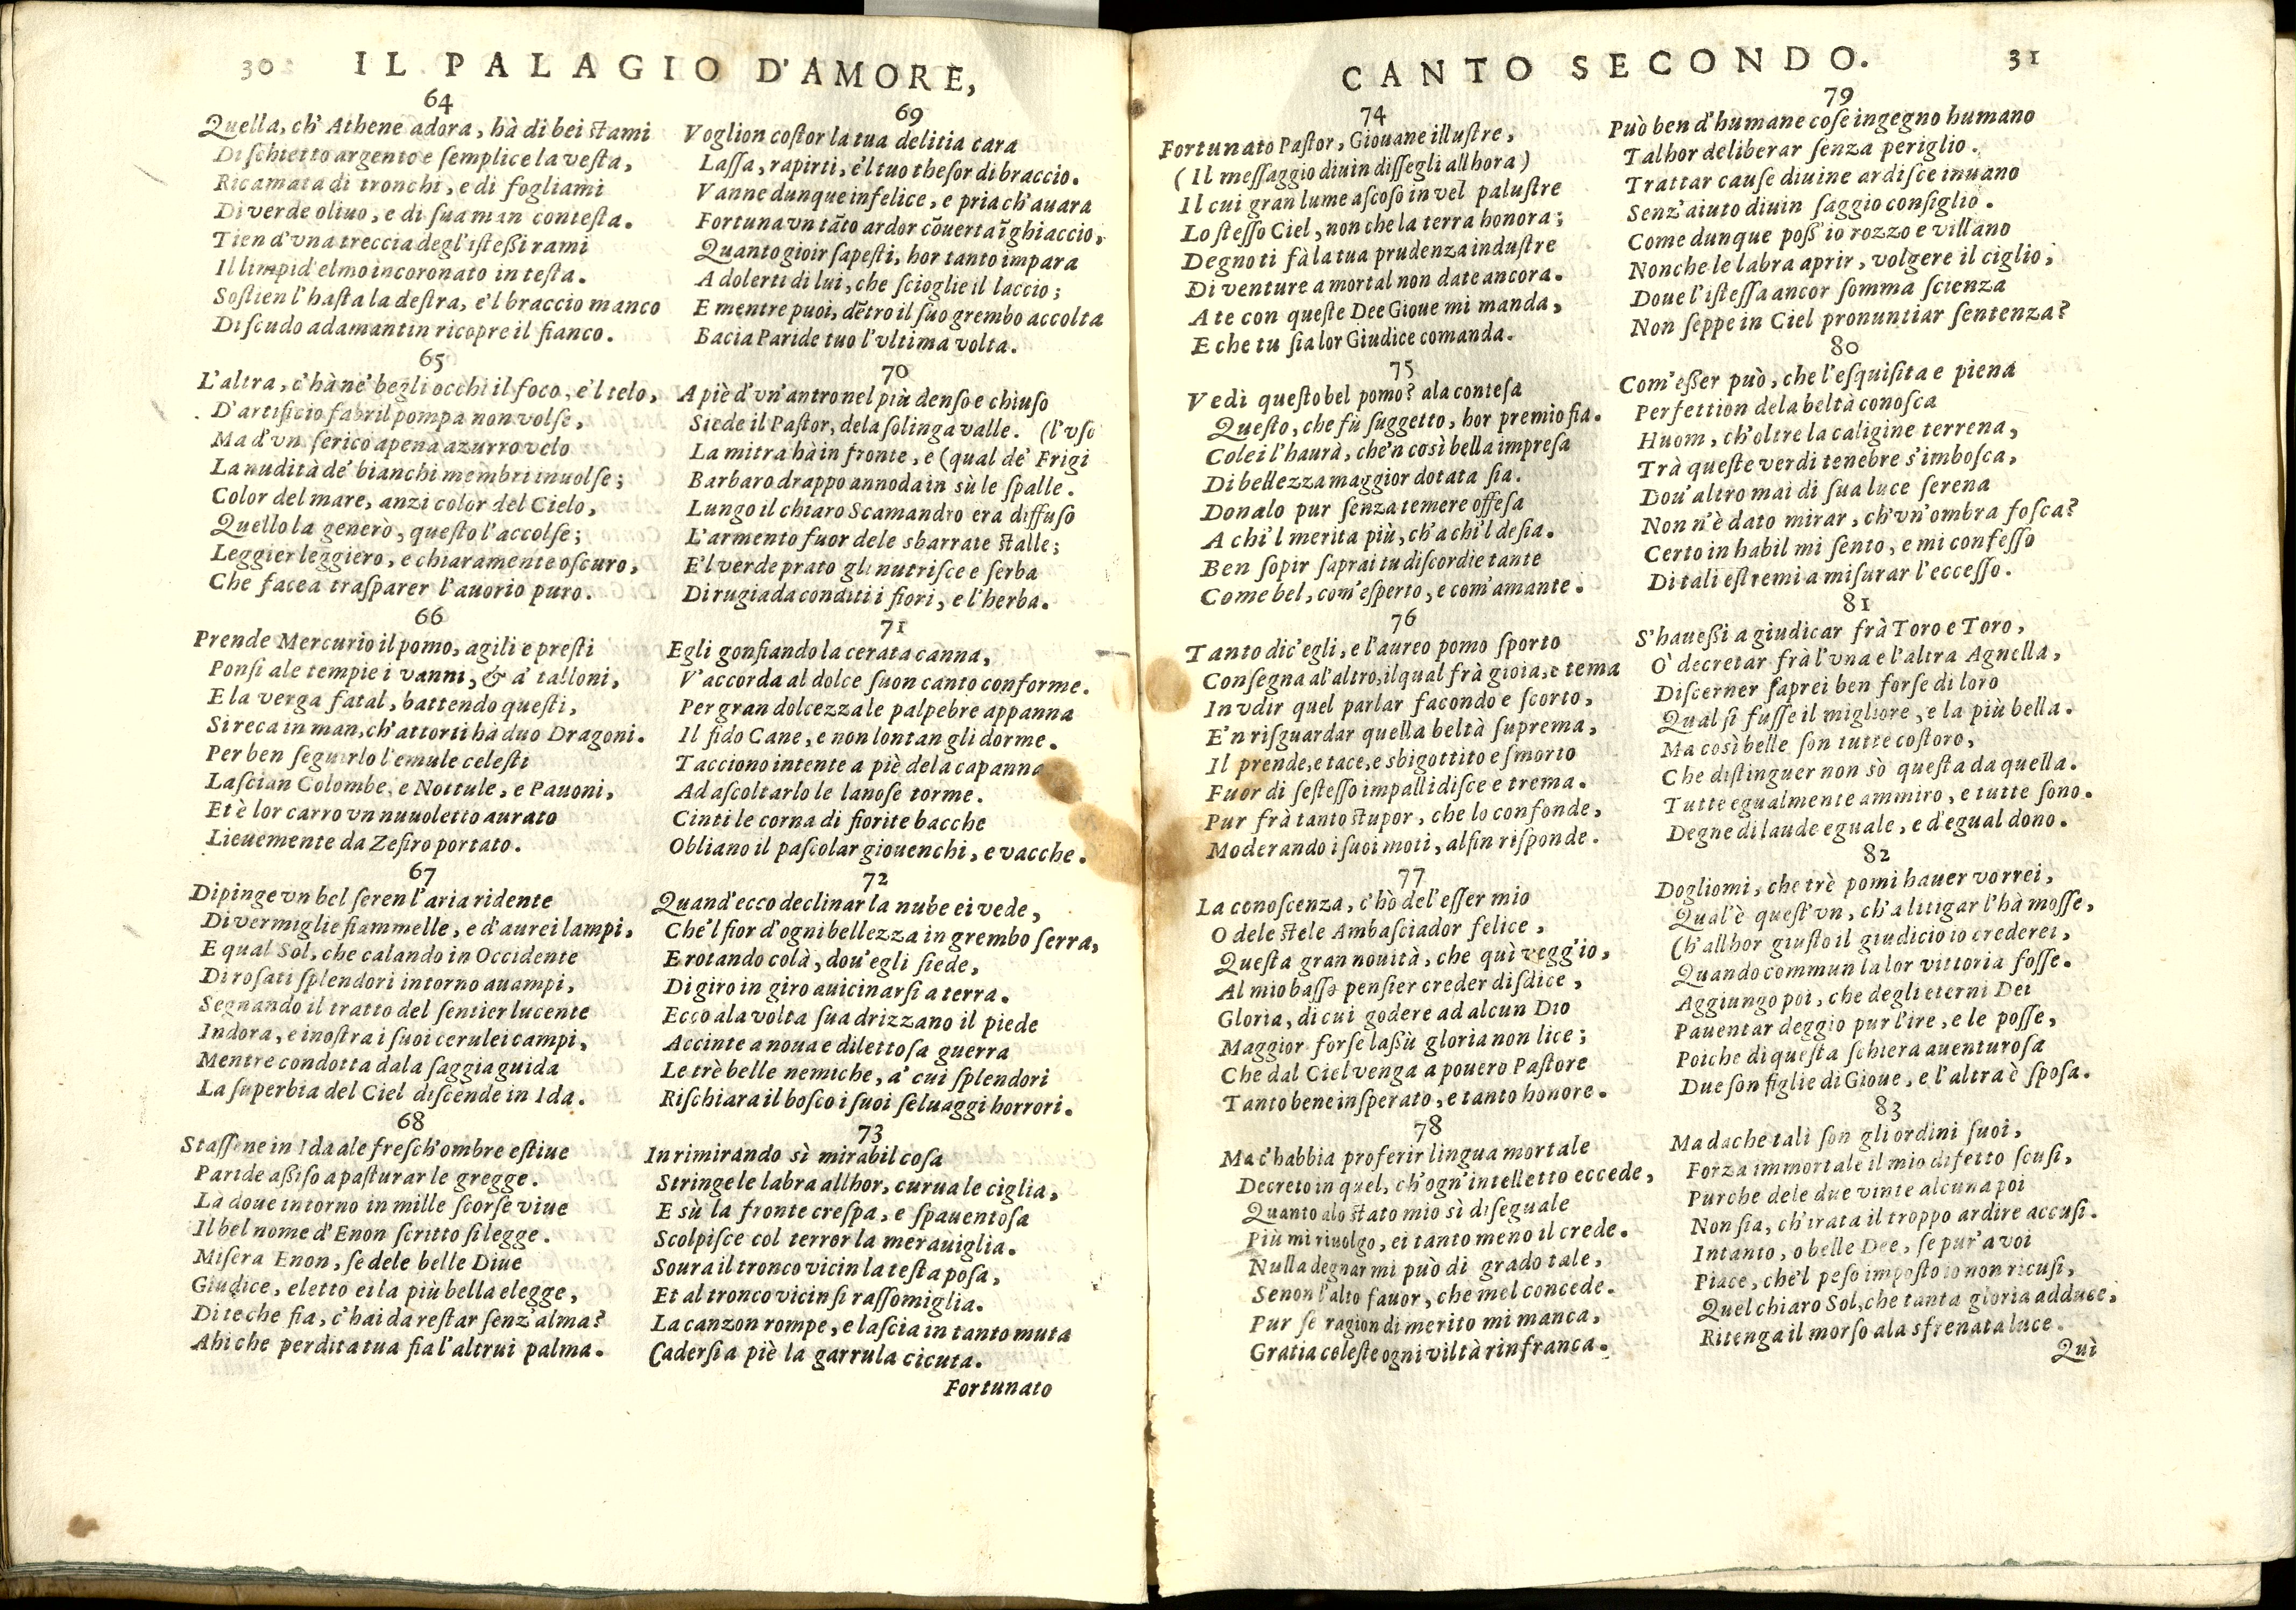 30 IL PALAGIO D'AMORE,
64
Quella, ch' Athene adora, hà di bei stami
Di schietto argento e semplice la vesta,
Ricamata di tronchi, e di fogliami
Di verde oliuo, e di sua man contesta.
Tien d'vna treccia degl'istessi rami
Il limpid' elmo incoronato in testa.
Sostien l'hasta la destra, e'l braccio manco
Di scudo adamantin ricopre il fianco.
65
L'altra, c'hà ne' begli occhi il foco, e'l telo,
D'artificio fabril pompa non volse,
Ma d'vn serico apena azurro velo
La nudità de' bianchi membri inuolse;
Color del mare, anzi color del Cielo,
Quello la generò, questo l'accolse;
Leggier leggiero, e chiaramente oscuro,
Che facea trasparer l'auorio puro.
66
Prende Mercurio il pomo, agili e presti
Ponsi ale tempie i vanni, & a' talloni,
E la verga fatal, battendo questi,
Si reca in man, ch'attorti hà duo Dragoni.
Per ben seguirlo l'emule celesti
Lascian Colombe, e Nottule, e Pauoni,
Et è lor carro vn nuuoletto aurato
Lieuemente da Zefiro portato.
67
Dipinge vn bel seren l'aria ridente
Di vermiglie fiammelle, e d'aurei lampi,
E qual Sol, che calando in Occidente
Di rosati splendori intorno auampi,
Segnando il tratto del sentier lucente
Indora, e inostra i suoi cerulei campi,
Mentre condotta da la saggia guida
La superbia del Ciel discende in Ida.
68
Stassene in Ida ale fresch' ombre estiue
Paride assiso a pasturar le gregge.
Là doue intorno in mille scorse viue
Il bel nome d'Enon scritto si legge.
Misera Enon, se dele belle Diue
Giudice, eletto ei la più bella elegge,
Di te che fia, c'hai da restar senz' alma?
Ahi che perdita tua fia l'altrui palma.
69
Voglion costor la tua delitia cara
Lassa, rapirti, e'l tuo thesor di braccio.
Vanne dunque infelice, e pria ch'auara
Fortuna vn tãto ardor cõuerta ĩ ghiaccio,
Quanto gioir sapesti, hor tanto impara
A dolerti di lui, che scioglie il laccio;
E mentre puoi, dẽtro il suo grembo accolta
Bacia Paride tuo l'vltima volta.
70
A piè d'vn' antro nel più denso e chiuso
Siede il Pastor, dela solinga valle. (l'vso
La mitra hà in fronte, e (qual de' Frigi
Barbaro drappo annoda in sù le spalle.
Lungo il chiaro Scamandro era diffuso
L'armento fuor dele sbarrate stalle;
E'l verde prato gli nutrisce e serba
Di rugiada conditi i fiori, e l'herba.
71
Egli gonfiando la cerata canna,
V'accorda al dolce suon canto conforme.
Per gran dolcezza le palpebre appanna
Il fido Cane, e non lontan gli dorme.
Tacciono intente a piè dela capanna
Ad ascoltarlo le lanose torme.
Cinti le corna di fiorite bacche
Obliano il pascolar giouenchi, e vacche.
72
Quand' ecco declinar la nube ei vede,
Che'l fior d'ogni bellezza in grembo serra,
E rotando colà, dou' egli siede,
Di giro in giro auicinarsi a terra.
Ecco ala volta sua drizzano il piede
Accinte a noua e dilettosa guerra
Le trè belle nemiche, a' cui splendori
Rischiara il bosco i suoi seluaggi horrori.
73
In rimirando sì mirabil cosa
Stringe le labra allhor, curua le ciglia,
E sù la fronte crespa, e spauentosa
Scolpisce col terror la merauiglia.
Soura il tronco vicin la testa posa,
Et al tronco vicin si rassomiglia.
La canzon rompe, e lascia in tanto muta
Cadersi a piè la garrula cicuta.
Fortunato
CANTO SECONDO. 31
74
Fortunato Pastor, Giouane illustre,
(Il messaggio diuin dissegli allhora)
Il cui gran lume ascoso in vel palustre
Lo stesso Ciel, non che la terra honora;
Degno ti fà la tua prudenza industre
Di venture a mortal non date ancora.
A te con queste Dee Gioue mi manda,
E che tu sia lor Giudice comanda.
75
Vedi questo bel pomo? ala contesa
Questo, che fù suggetto, hor premio fia.
Colei l'haurà, che'n così bella impresa
Di bellezza maggior dotata sia.
Donalo pur senza temere offesa
A chi'l merita più, ch'a chi'l desia.
Ben sopir saprai tu discordie tante
Come bel, com' esperto, e com' amante.
76
Tanto dic' egli, e l'aureo pomo sporto
Consegna al'altro, il qual frà gioia, e tema
In vdir quel parlar facondo e scorto,
E'n risguardar quella beltà suprema,
Il prende, e tace, e sbigottito e smorto
Fuor di se stesso impallidisce e trema.
Pur frà tanto stupor, che lo confonde,
Moderando i suoi moti, alfin risponde.
77
La conoscenza, c'hò del'esser mio
O dele stele Ambasciador felice,
Questa gran nouità, che quì vegg'io,
Al mio basso pensier creder disdice,
Gloria, di cui godere ad alcun Dio
Maggior forse lassù gloria non lice;
Che dal Ciel venga a pouero Pastore
Tanto bene insperato, e tanto honore.
78
Ma c'habbia proferir lingua mortale
Decreto in quel, ch'ogn' intelletto eccede,
Quanto alo stato mio sì diseguale
Più mi riuolgo, ei tanto meno il crede.
Nulla degnar mi può di grado tale,
Se non l'alto fauor, che mel concede.
Pur se ragion di merito mi manca,
Gratia celeste ogni viltà rinfranca.
79
Può ben d'humane cose ingegno humano
Talhor deliberar senza periglio.
Trattar cause diuine ardisce inuano
Senz' aiuto diuin saggio consiglio.
Come dunque poss' io rozzo e villano
Nonche le labra aprir, volgere il ciglio;
Doue l'istessa ancor somma scienza
Non seppe in Ciel pronuntiar sentenza?
80
Com' esser può, che l'esquisita e piena
Perfettion dela beltà conosca
Huom, ch'oltre la caligine terrena,
Trà queste verdi tenebre s'imbosca,
Dou' altro mai di sua luce serena
Non n'è dato mirar, ch'vn' ombra fosca?
Certo inhabil mi sento, e mi confesso
Di tali estremi a misurar l'eccesso.
81
S'hauessi a giudicar frà Toro e Toro,
O' decretar frà l'vna e l'altra Agnella,
Discerner saprei ben forse di loro
Qual si fusse il migliore, e la più bella.
Ma così belle son tutte costoro,
Che distinguer non sò questa da quella.
Tutte egualmente ammiro, e tutte sono.
Degne di laude eguale, e d'egual dono.
82
Dogliomi, che trè pomi hauer vorrei,
Qual'è quest' vn, ch'a litigar l'hà mosse,
Ch'allhor giusto il giudicio io crederei,
Quando commun la lor vittoria fosse.
Aggiungo poi, che degli eterni Dei
Pauentar deggio pur l'ire, e le posse,
Poiche di questa schiera auenturosa
Due son figlie di Gioue, e l'altra è sposa.
83
Ma dache tali son gli ordini suoi,
Forza immortale il mio difetto scusi,
Purche dele due vinte alcuna poi
Non sia, ch'irata il troppo ardire accusi.
Intanto, o belle Dee, se pur' a voi
Piace, che'l peso imposto io non ricusi,
Quel chiaro Sol, che tanta gloria adduce,
Ritenga il morso ala sfrenata luce.
Quì